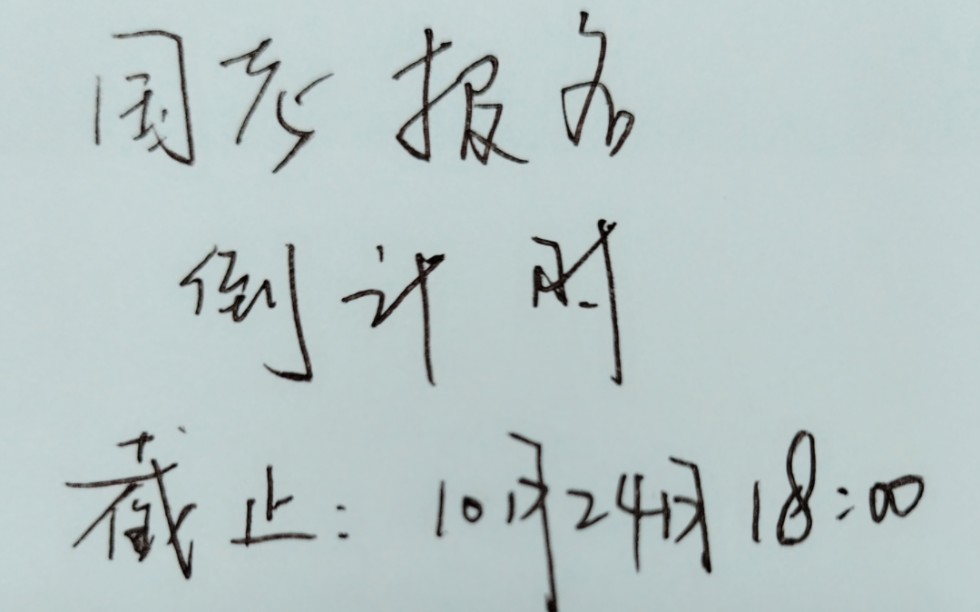 国考报名
倒计时
截止：10月24日18:00